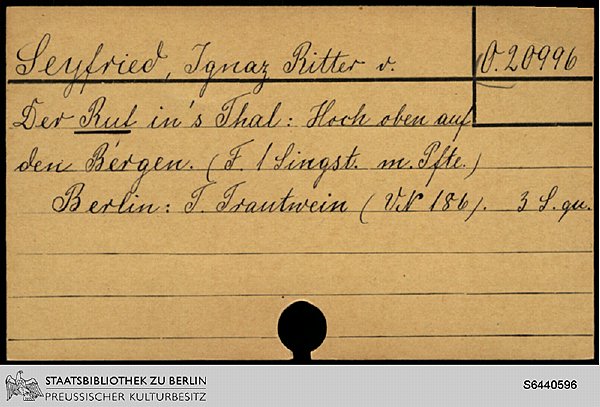 Seyfried, Ignaz Ritter v.
O. 20996
Der Ruf in's Thal: Hoch oben auf
den Bergen. (F. 1 Singst. m. Pfte.)
Berlin: T. Trautwein (VN 186). 3 S. qu.
STAATSBIBLIOTHEK ZU BERLIN
PREUSSISCHER KULTURBESITZ
S6440596